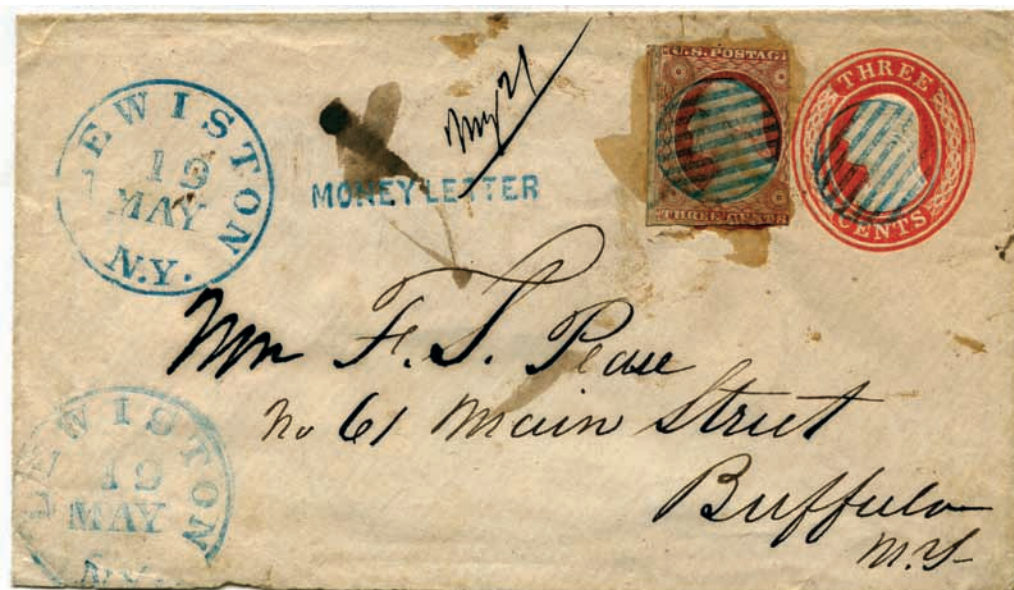 LEWISTON
19
MAY
N.Y.
May 21
MONEY LETTER
U.S. POSTAGE
THREE CENTS
THREE
CENTS
F. S. Pease
No 61 Main Street
Buffalo
N.Y.
LEWISTON
19
MAY
N.Y.